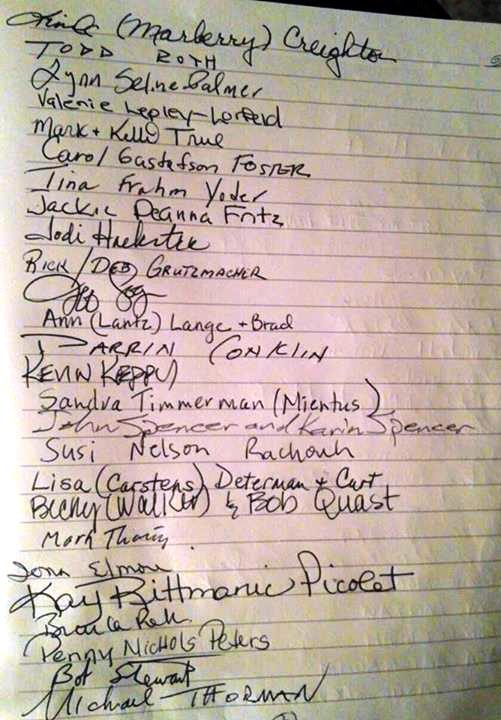 Linda (Marberry) Creighton
TODD ROTH
Lynn Seline Palmer
Valerie Lepley-Lerfeld
Mark + Kelli True
Carol Gustafson FOSTER
Tina Frahm Yoder
Jackie Deanna Fritz
Jodi
RICK / DEB GRUTZMACHER
Ann (Lantz) Lange + Brad
DARRIN CONKLIN
KEVIN
Sandra Timmerman (Mientus)
John Spencer and Karin Spencer
Susi Nelson
Lisa (Carstens) Determan + Curt
Becky (Walker) & Bob Quast
Mark
Kay Rittmanic Picolet
Penny Nichols Peters
Bob Stewart
Michael THORMAN